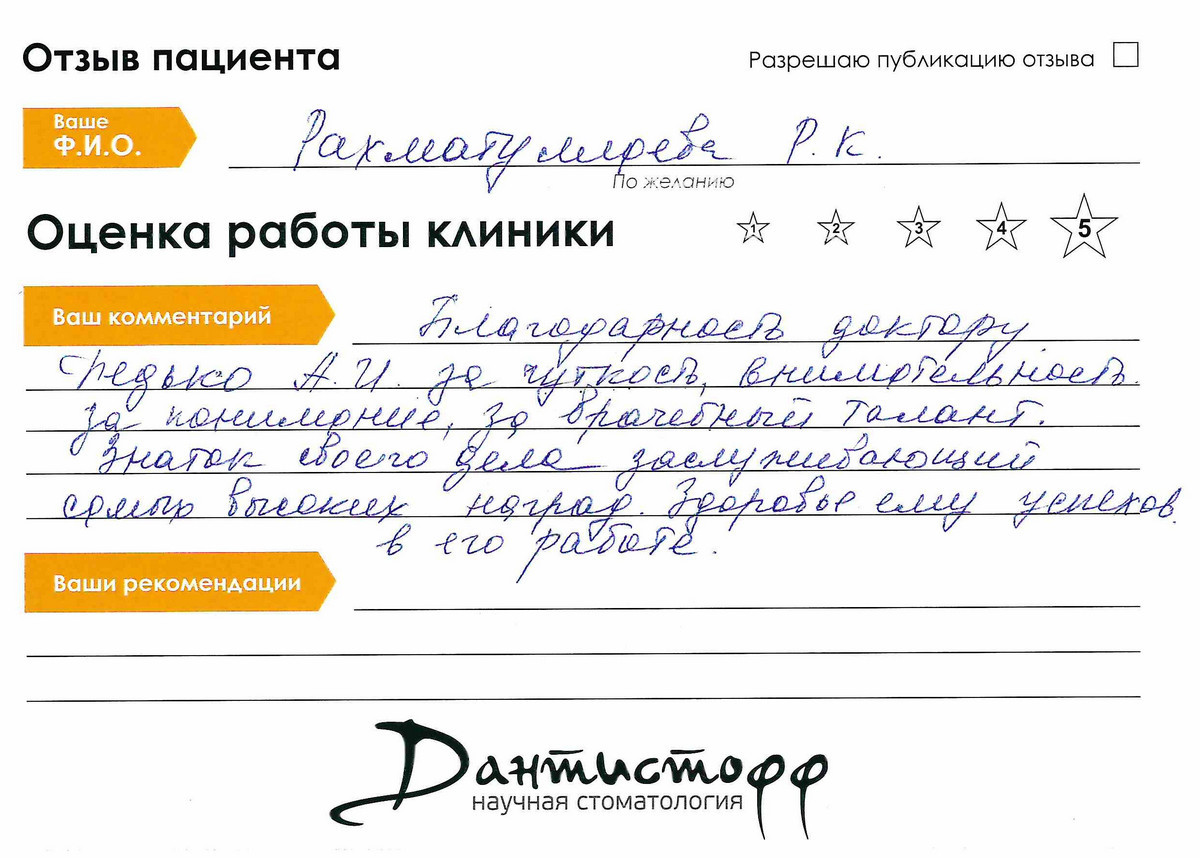 Отзыв пациента
Разрешаю публикацию отзыва
Ваше
Ф.И.О.
Р.К.
По желанию
Оценка работы клиники
1 2 3 4 5
Ваш комментарий
Благодарность доктору
Редько А.И. за чуткость, внимательность.
за понимание, за врачебный талант.
Знаток своего дела заслуживающий
самых высоких наград. Здоровье ему успехов
в его работе.
Ваши рекомендации
Дантистофф
научная стоматология